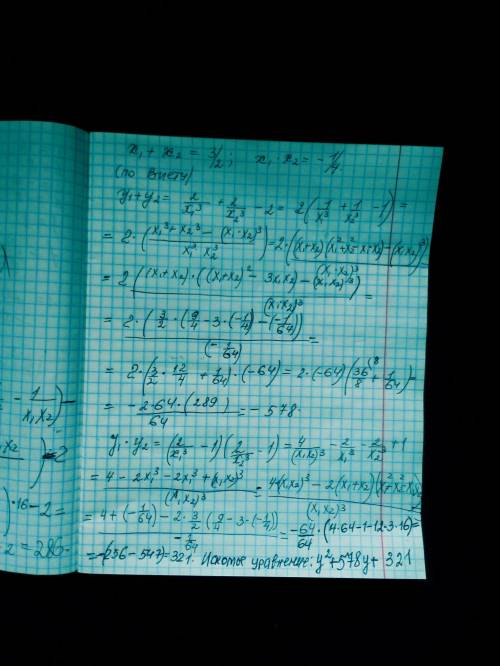 x₁ + x₂ = 3/2; x₁ · x₂ = -1/4
(по Виету)
y₁+y₂ = 2/x₁³ + 2/x₂³ - 2 = 2(1/x₁³ + 1/x₂³ - 1) =
= 2·((x₁³+x₂³ - (x₁·x₂)³)/(x₁³ x₂³)) = 2·((x₁+x₂)(x₁²+x₂²-x₁x₂) - (x₁x₂)³)/(x₁·x₂)³
= 2((x₁+x₂)·((x₁+x₂)² - 3x₁x₂) - (x₁x₂)³)/(x₁x₂)³ =
= 2·(3/2·(9/4 - 3·(-1/4)) - (-1/64))/(-1/64) =
= 2·(3/2·12/4 + 1/64)·(-64) = 2·(-64)(36/8 + 1/64)=
= -2·64·(289)/64 = -578
y₁·y₂ = (2/x₁³ - 1)(2/x₂³ - 1) = 4/(x₁x₂)³ - 2/x₁³ - 2/x₂³ + 1
= (4 - 2x₁³ - 2x₂³ + (x₁x₂)³)/(x₁x₂)³ = (4(x₁x₂)³ - 2(x₁+x₂)(x₁²+x₂²-x₁x₂))/(x₁x₂)³
= (4+(-1/64) - 2·3/2(9/4 - 3·(-1/4)))/(-1/64) = -64/64·(4·64-1-12·3·16)=
=-(256-547)=321. Искомое уравнение: y²+578y+321
- 1/(x₁x₂))-
x₁x₂)=2
)·16-2=
2=286-